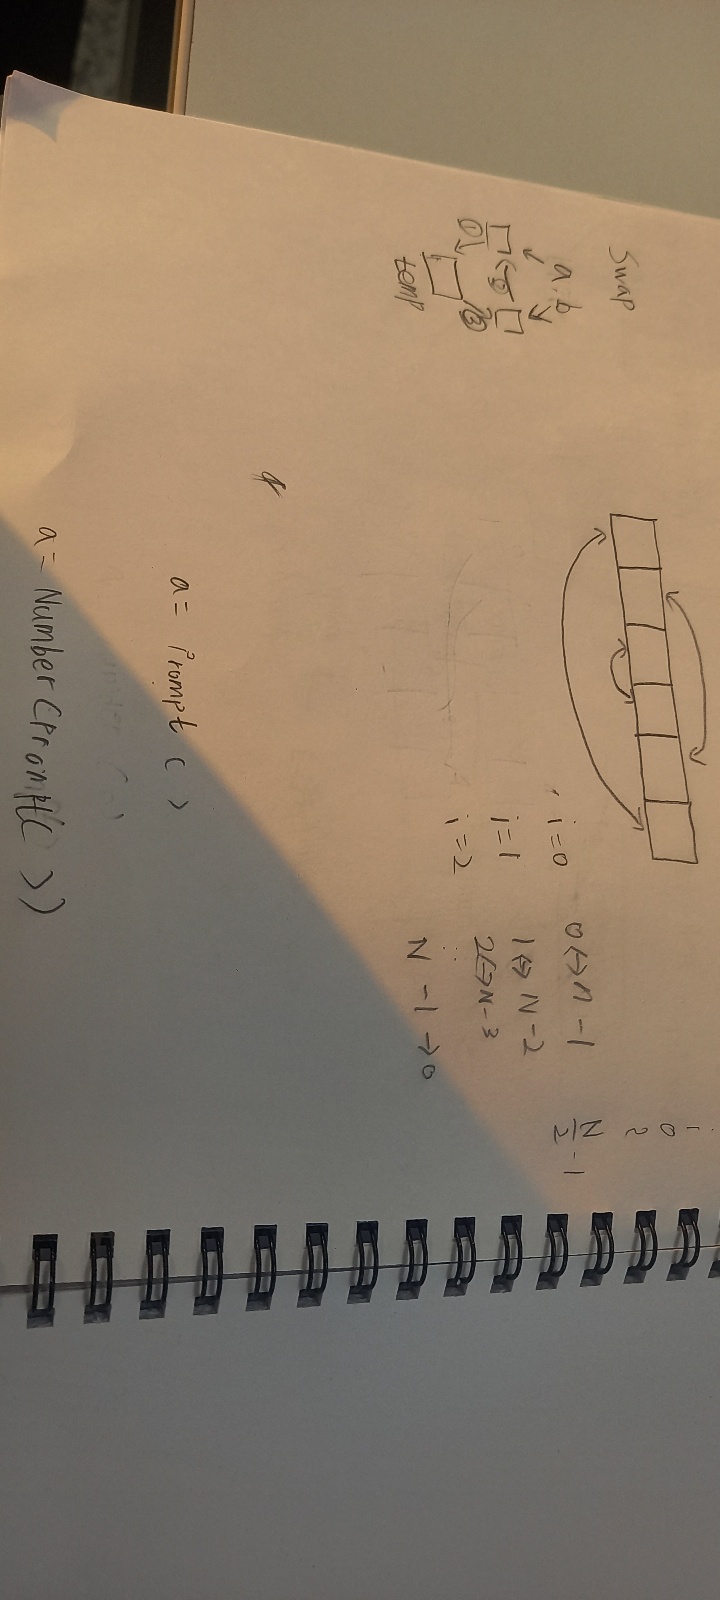 Swap
a. b
① ② ③
temp
i=0 0↔n-1
i=1 1↔N-2
i=2 2↔N-3
⋮
N-1→0
0
~
N/2 -1
a= Prompt ( )
a= Number(Prompt( ))